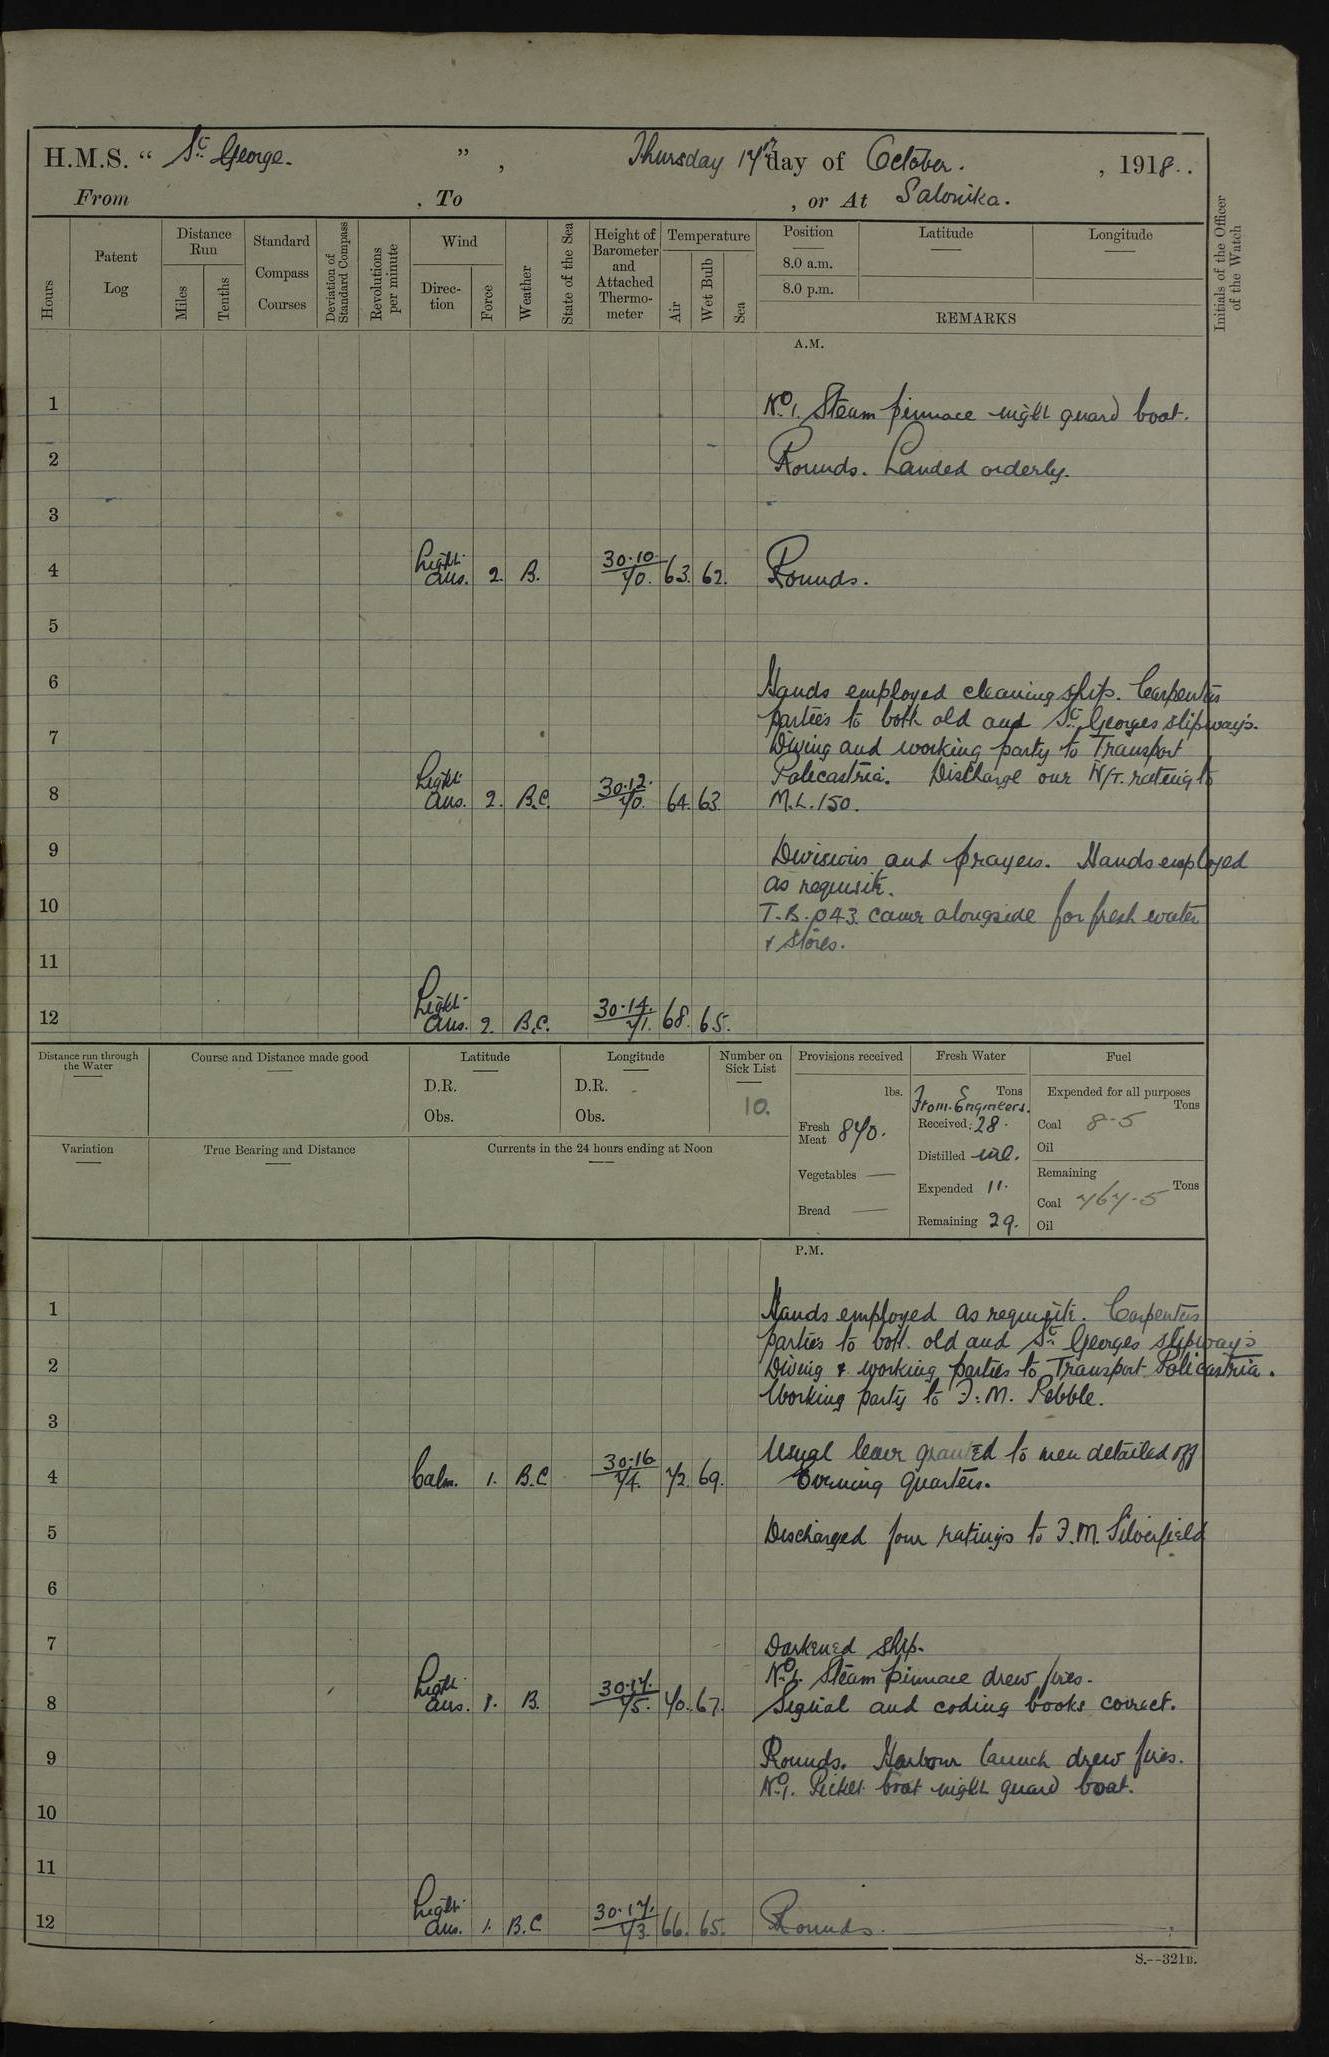 H.M.S. " St. George. ", Thursday 17th day of October. , 1918..
From , To , or At Salonika.
Hours
Patent Log
Distance Run
Miles
Tenths
Standard Compass Courses
Deviation of Standard Compass
Revolutions per minute
Wind
Direction
Force
Weather
State of the Sea
Height of Barometer and Attached Thermometer
Temperature
Air
Wet Bulb
Sea
Position
8.0 a.m.
8.0 p.m.
Latitude
Longitude
REMARKS
Initials of the Officer of the Watch
A.M.
1 No. 1. Steam pinnace night guard boat.
2 Rounds. Landed orderly.
3
4 Light airs. 2. B. 30.10. 70. 63. 62. Rounds.
5
6 Hands employed cleaning ship. Carpenters
parties to both old and St. Georges slipways.
7 Diving and working party to Transport
Policastria. Discharge our W/T. rating to
8 Light airs. 2. B.C. 30.12. 70. 64. 63. M.L. 150.
9 Divisions and prayers. Hands employed
as requisite.
10 T.B. 043 came alongside for fresh water
& stores.
11
12 Light airs. 2. B.C. 30.14. 71. 68. 65.
Distance run through the Water
Course and Distance made good
Latitude
D.R.
Obs.
Longitude
D.R.
Obs.
Number on Sick List
10.
Variation
True Bearing and Distance
Currents in the 24 hours ending at Noon
Provisions received
lbs.
Fresh Meat 870.
Vegetables —
Bread —
Fresh Water
Tons
From Engineers.
Received: 28.
Distilled nil.
Expended 11.
Remaining 29.
Fuel
Expended for all purposes
Tons
Coal 8-5
Oil
Remaining
Tons
Coal 767-5
Oil
P.M.
1 Hands employed as requisite. Carpenters
parties to both old and St. Georges slipways
2 Diving & working parties to Transport Policastria.
Working party to F.M. Pebble.
3
Usual leave granted to men detailed off
4 Calm. 1. B.C 30.16 74. 72. 69. Evening quarters.
5 Discharged four ratings to F.M. Silverfield
6
7 Darkened ship.
No. 1. Steam pinnace drew fires.
8 Light airs. 1. B. 30.17. 75. 70. 67. Signal and coding books correct.
9 Rounds. Harbour launch drew fires.
No. 1. Picket boat night guard boat.
10
11
12 Light airs. 1. B.C 30.17. 73. 66. 65. Rounds.
S.--321B.